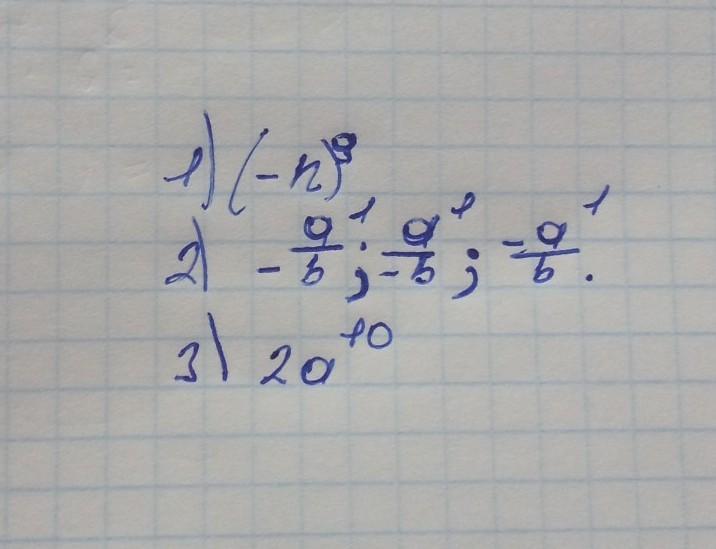 1) (-n)⁹
2) - a/b ¹ ; a/-b ¹ ; -a/b ¹ .
3) 2a¹⁰